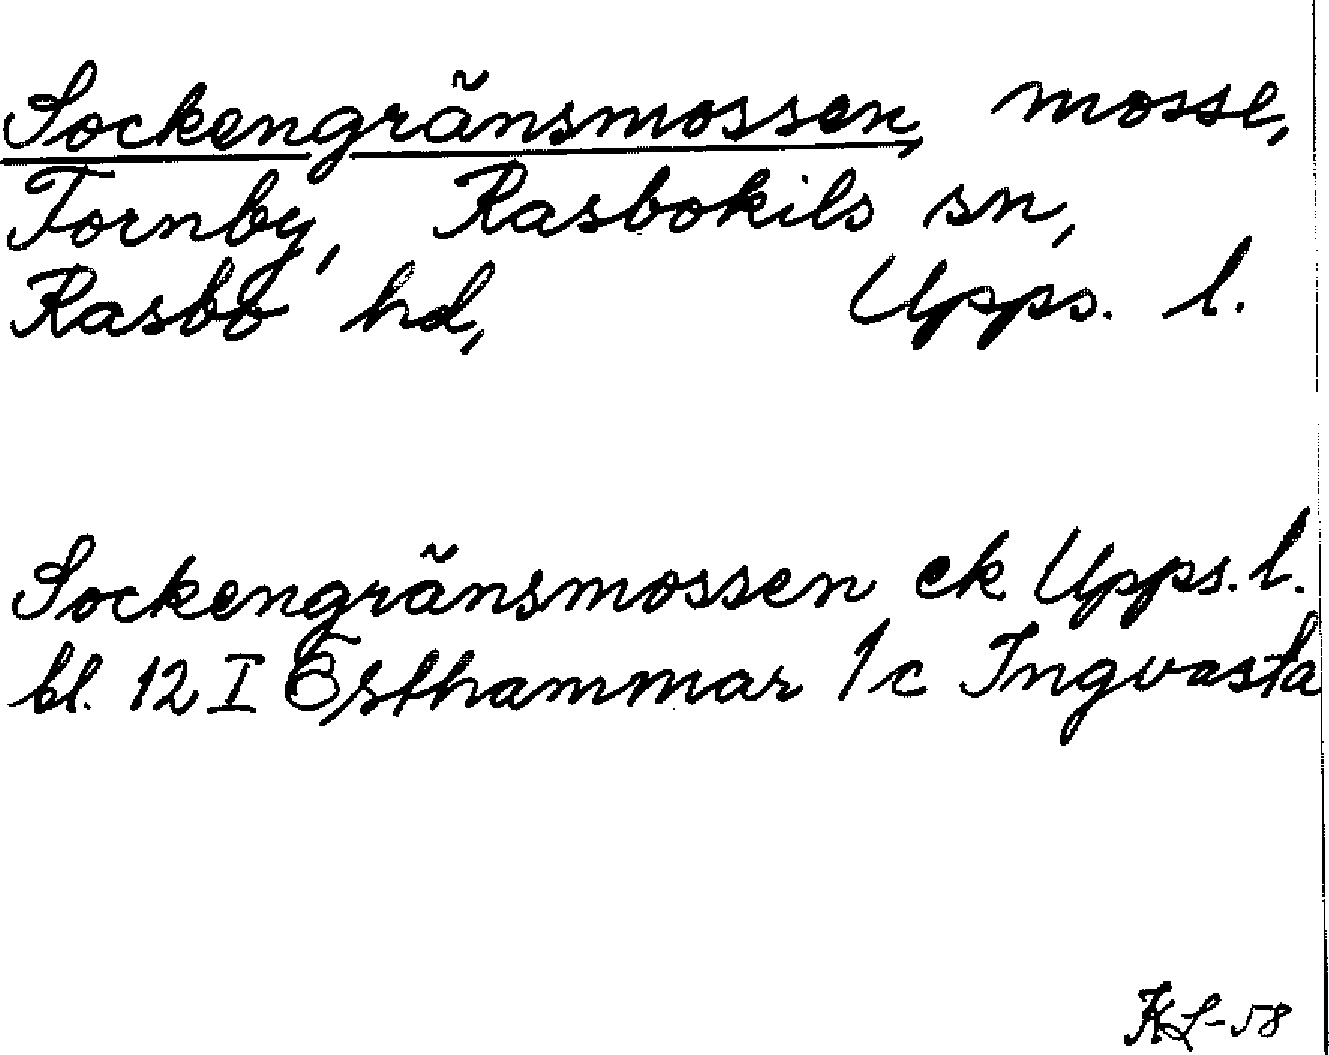 Sockengränsmossen, mosse,
Tornby, Rasbokils sn,
Rasbo hd, Upps. l.
Sockengränsmossen ek Upps. l.
bl. 12 I Östhammar 1c Ingvasta
KL-58